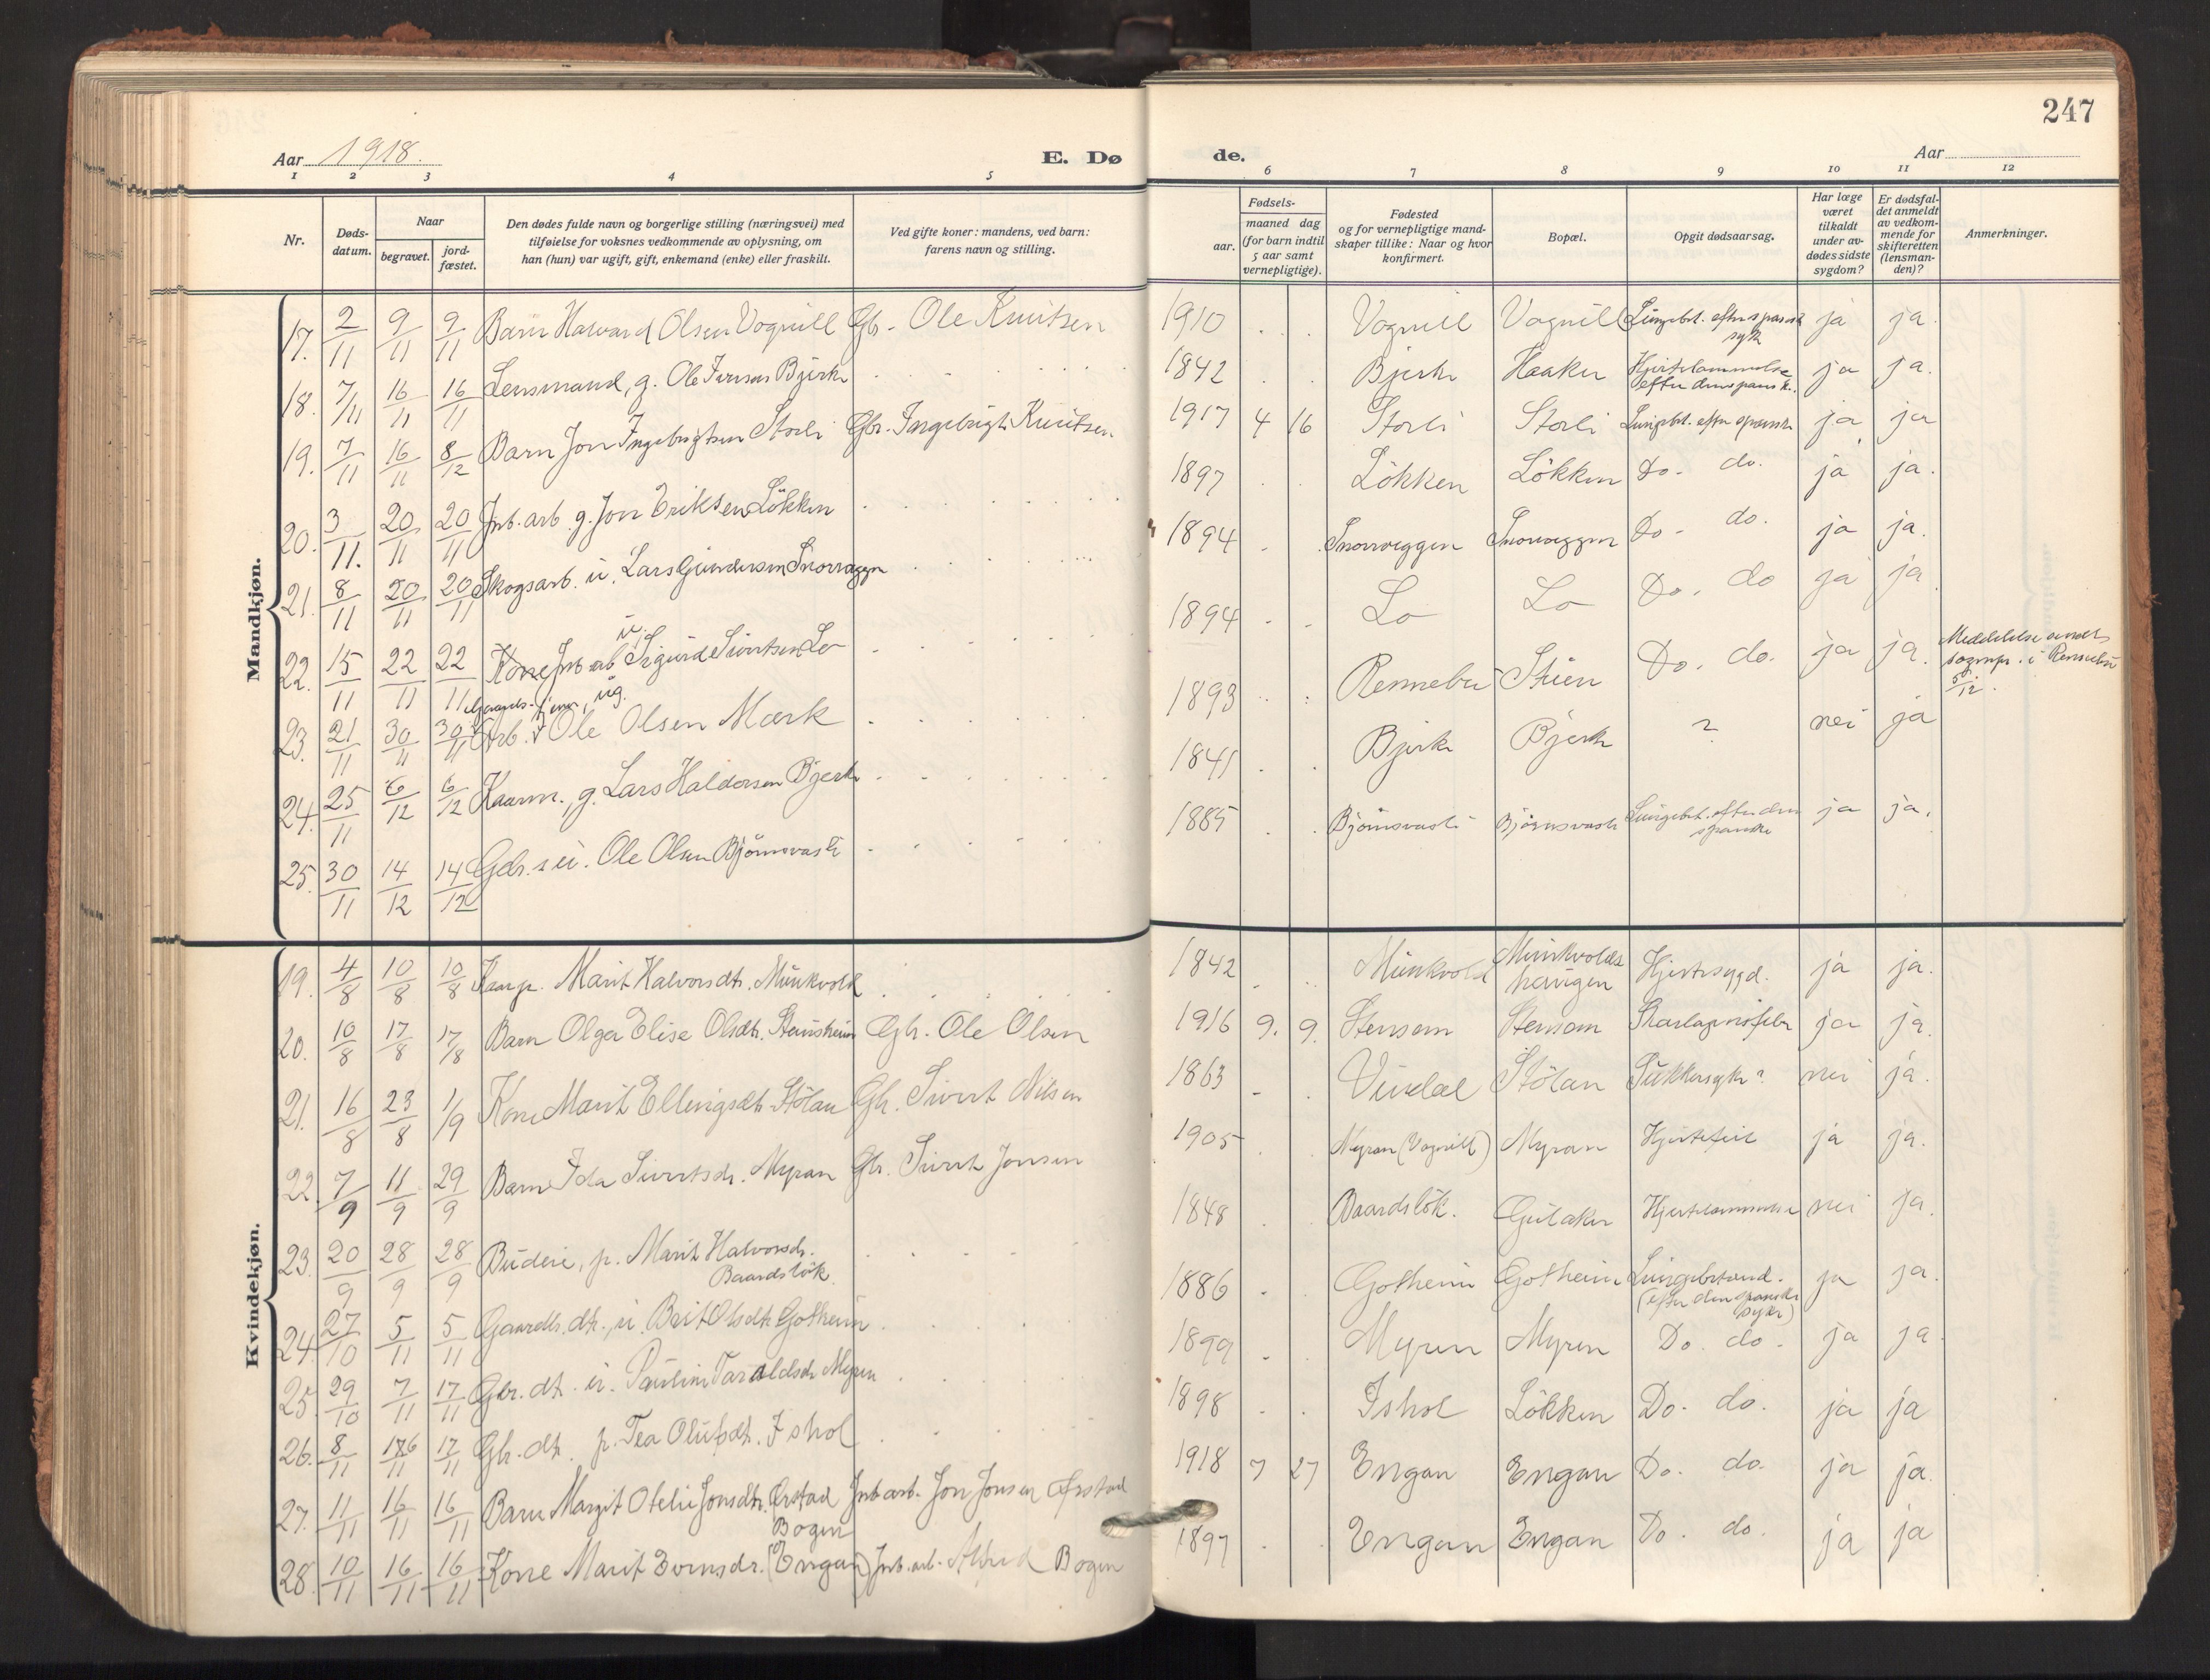 247
Aar 1918.
E. Dø
de.
Aar
1 2 3 4 5
6 7 8 9 10 11 12
Nr.
Døds-
datum.
Naar
begravet.
jord-
fæstet.
Den dødes fulde navn og borgerlige stilling (næringsvei) med
tilføielse for voksnes vedkommende av oplysning, om
han (hun) var ugift, gift, enkemand (enke) eller fraskilt.
Ved gifte koner: mandens, ved barn:
farens navn og stilling.
Fødsels-
aar.
maaned dag
(for barn indtil
5 aar samt
vernepligtige).
Fødested
og for vernepligtige mand-
skaper tillike: Naar og hvor
konfirmert.
Bopæl.
Opgit dødsaarsag.
Har læge
været
tilkaldt
under av-
dødes sidste
sygdom?
Er dødsfal-
det anmeldt
av vedkom-
mende for
skifteretten
(lensman-
den)?
Anmerkninger.
Mandkjøn.
17. 2/11 9/11 9/11 Barn Halvard Olsen Vognill Gbr. Ole Knutsen 1910 Vognill Vognill Lungebet. efter spansk syk ja ja.
18. 7/11 16/11 16/11 Lensmand, g. Ole Iversen Bjerke 1842 Bjerke Haaker Hjertelammelse efter den spansk. ja ja.
19. 7/11 16/11 8/12 Barn Jon Ingebrigtsen Storli Gbr. Ingebrigt Knutsen 1917 4 16 Storli Storli Lungebet. efter spansk ja ja
20. 3/11. 20/11 20/11 Jnb. arb. g. Jon Eriksen Løkken 1897 Løkken Løkken Do. do. ja ja.
21. 8/11 20/11 20/11 Skogsarb. u. Lars Gundersen Snorroeggen 1894 Snorroeggen Snorroeggen Do. do. ja ja.
22. 15/11 22/11 22/11 Jnb arb u. Sigurd Sivertsen Lo 1894 Lo Lo Do. do ja ja
23. 21/11 30/11 30/11 Arb. ug. Ole Olsen Mærk 1893 Rennebu Stuen Do. do. ja ja. Meddelelse sendt sognepr. i Rennebu 5/12.
24. 25/11 6/12 6/12 Kaarm., g. Lars Haldorsen Bjerke 1841 Bjerke Bjerke ? nei ja
25. 30/11 14/12 14/12 Gbr. s. u. Ole Olsen Bjørnsvasli 1885 Bjørnsvasli Bjørnsvasli Lungebet. efter den spanske ja ja.
Kvindekjøn.
19. 4/8 10/8 10/8 Marit Halvorsdtr. Munkvold 1842 Munkvold Munkvolds haugen Hjertesygd. ja ja.
20. 10/8 17/8 17/8 Barn Olga Elise Olsdtr. Stensheim Gbr. Ole Olsen 1916 9. 9. Stensem Stensem Skarlagensfeber ja ja.
21. 16/8 23/8 1/9 Kone Marit Ellingsdtr. Stølan Gbr. Sivert Nilsen 1863 Vindal Stølan Sukkersyke? nei ja.
22. 7/9 11/9 29/9 Barn Ida Sivertsdr. Myran Gbr. Sivert Jonsen 1905 Myran (Vognill) Myran Hjertefeil ja ja.
23. 20/9 28/9 28/9 Budeie, p. Marit Halvorsdr. Baardsløk 1848 Baardsløk. Gulaker Hjertelammelse nei ja.
24. 27/10 5/11 5/11 Gaardbr. dtr., u. Brit Olsdtr. Gotheim 1886 Gotheim Gotheim Lungebetænd. (efter den spanske syke) ja ja.
25. 29/10 7/11 17/11 Gbr. dtr. u. Pauline Taraldsdr. Myren 1899 Myren Myren Do. do. ja ja
26. 8/11 16/11 17/11 Gbr. dtr. p. Tea Olufsdtr. Ishol 1898 Ishol Løkken Do. do. ja ja
27. 11/11 16/11 16/11 Barn Margit Otelie Jonsdtr. Ørstad Jnb. arb. Jon Jonsen Ørstad 1918 7 27 Engan Engan Do. do. ja ja.
28. 10/11 16/11 16/11 Kone Marit Evensdr. Bogen (Engan) Jnb. arb. Alfred Bogen 1897 Engan Engan Do. do. ja ja